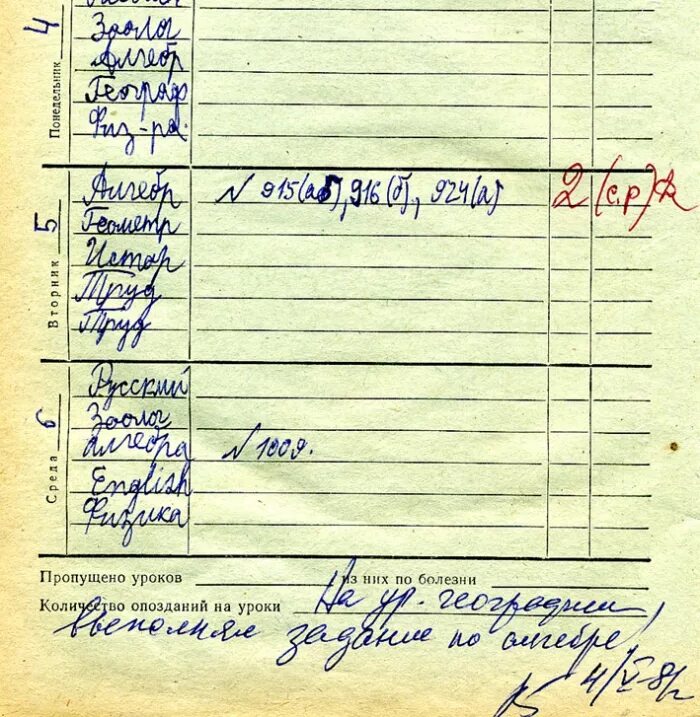 4
Понедельник
Зоолог
Алгебр
Географ
Физ-ра
5
Вторник
Алгебр N 915(аб), 916(б), 924(а) 2 (с.р)
Геометр
Истор
Труд
Труд
6
Среда
Русский
Зоолог
алгебра N 1009.
English
Физика
Пропущено уроков из них по болезни
Количество опозданий на уроки На ур. географии,
выполнял задание по алгебре,
4/V-8